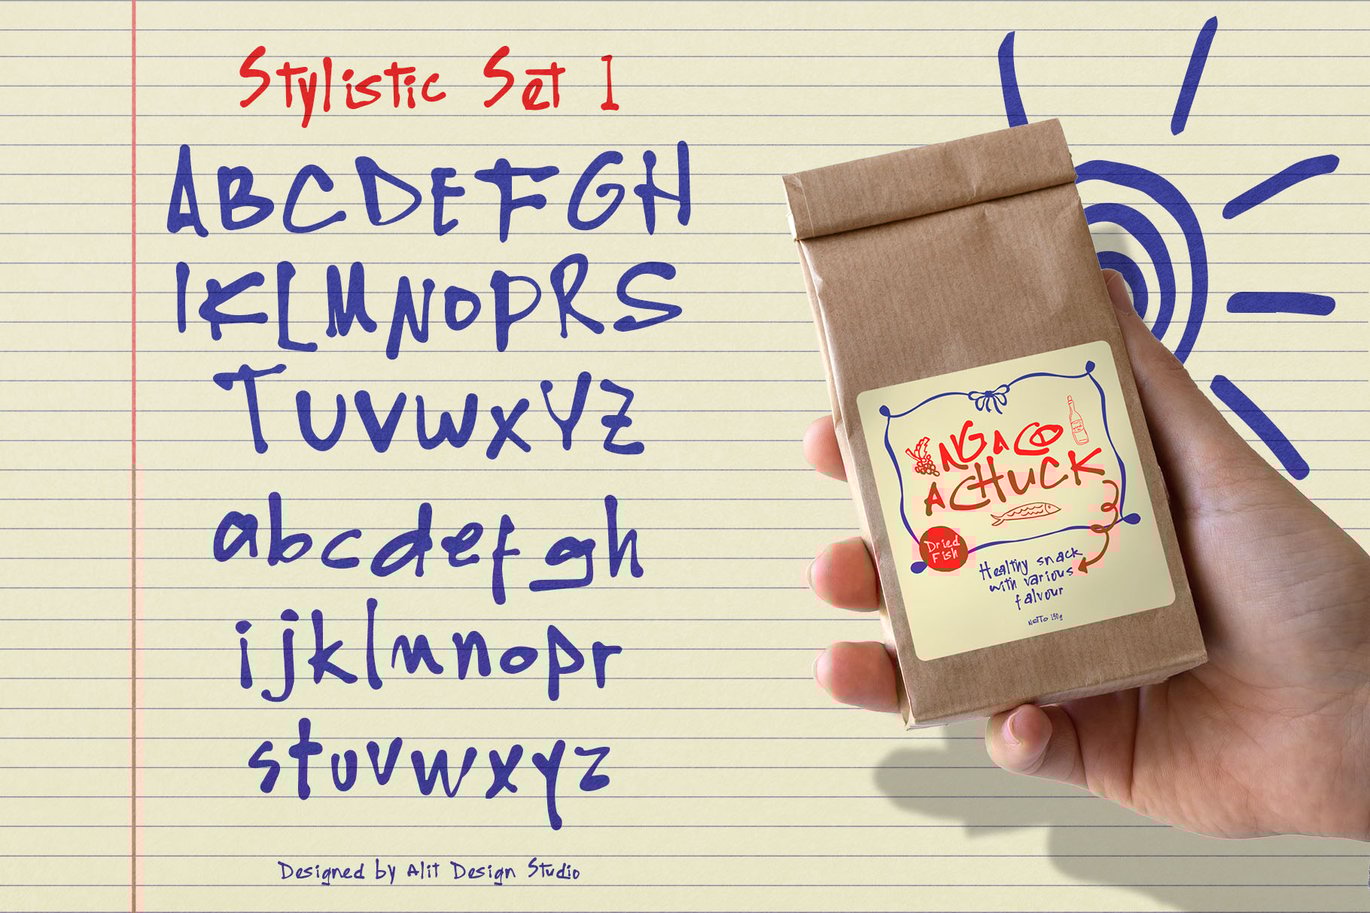 Stylistic Set 1
ABCDEFGH
IKLMNOPRS
TUVWXYZ
abcdefgh
ijklmnopr
stuvwxyz
Designed by Alit Design Studio
NGACO
ACHUCK
Dried
Fish
Healthy snack
with various
falvour
NETTO 150g